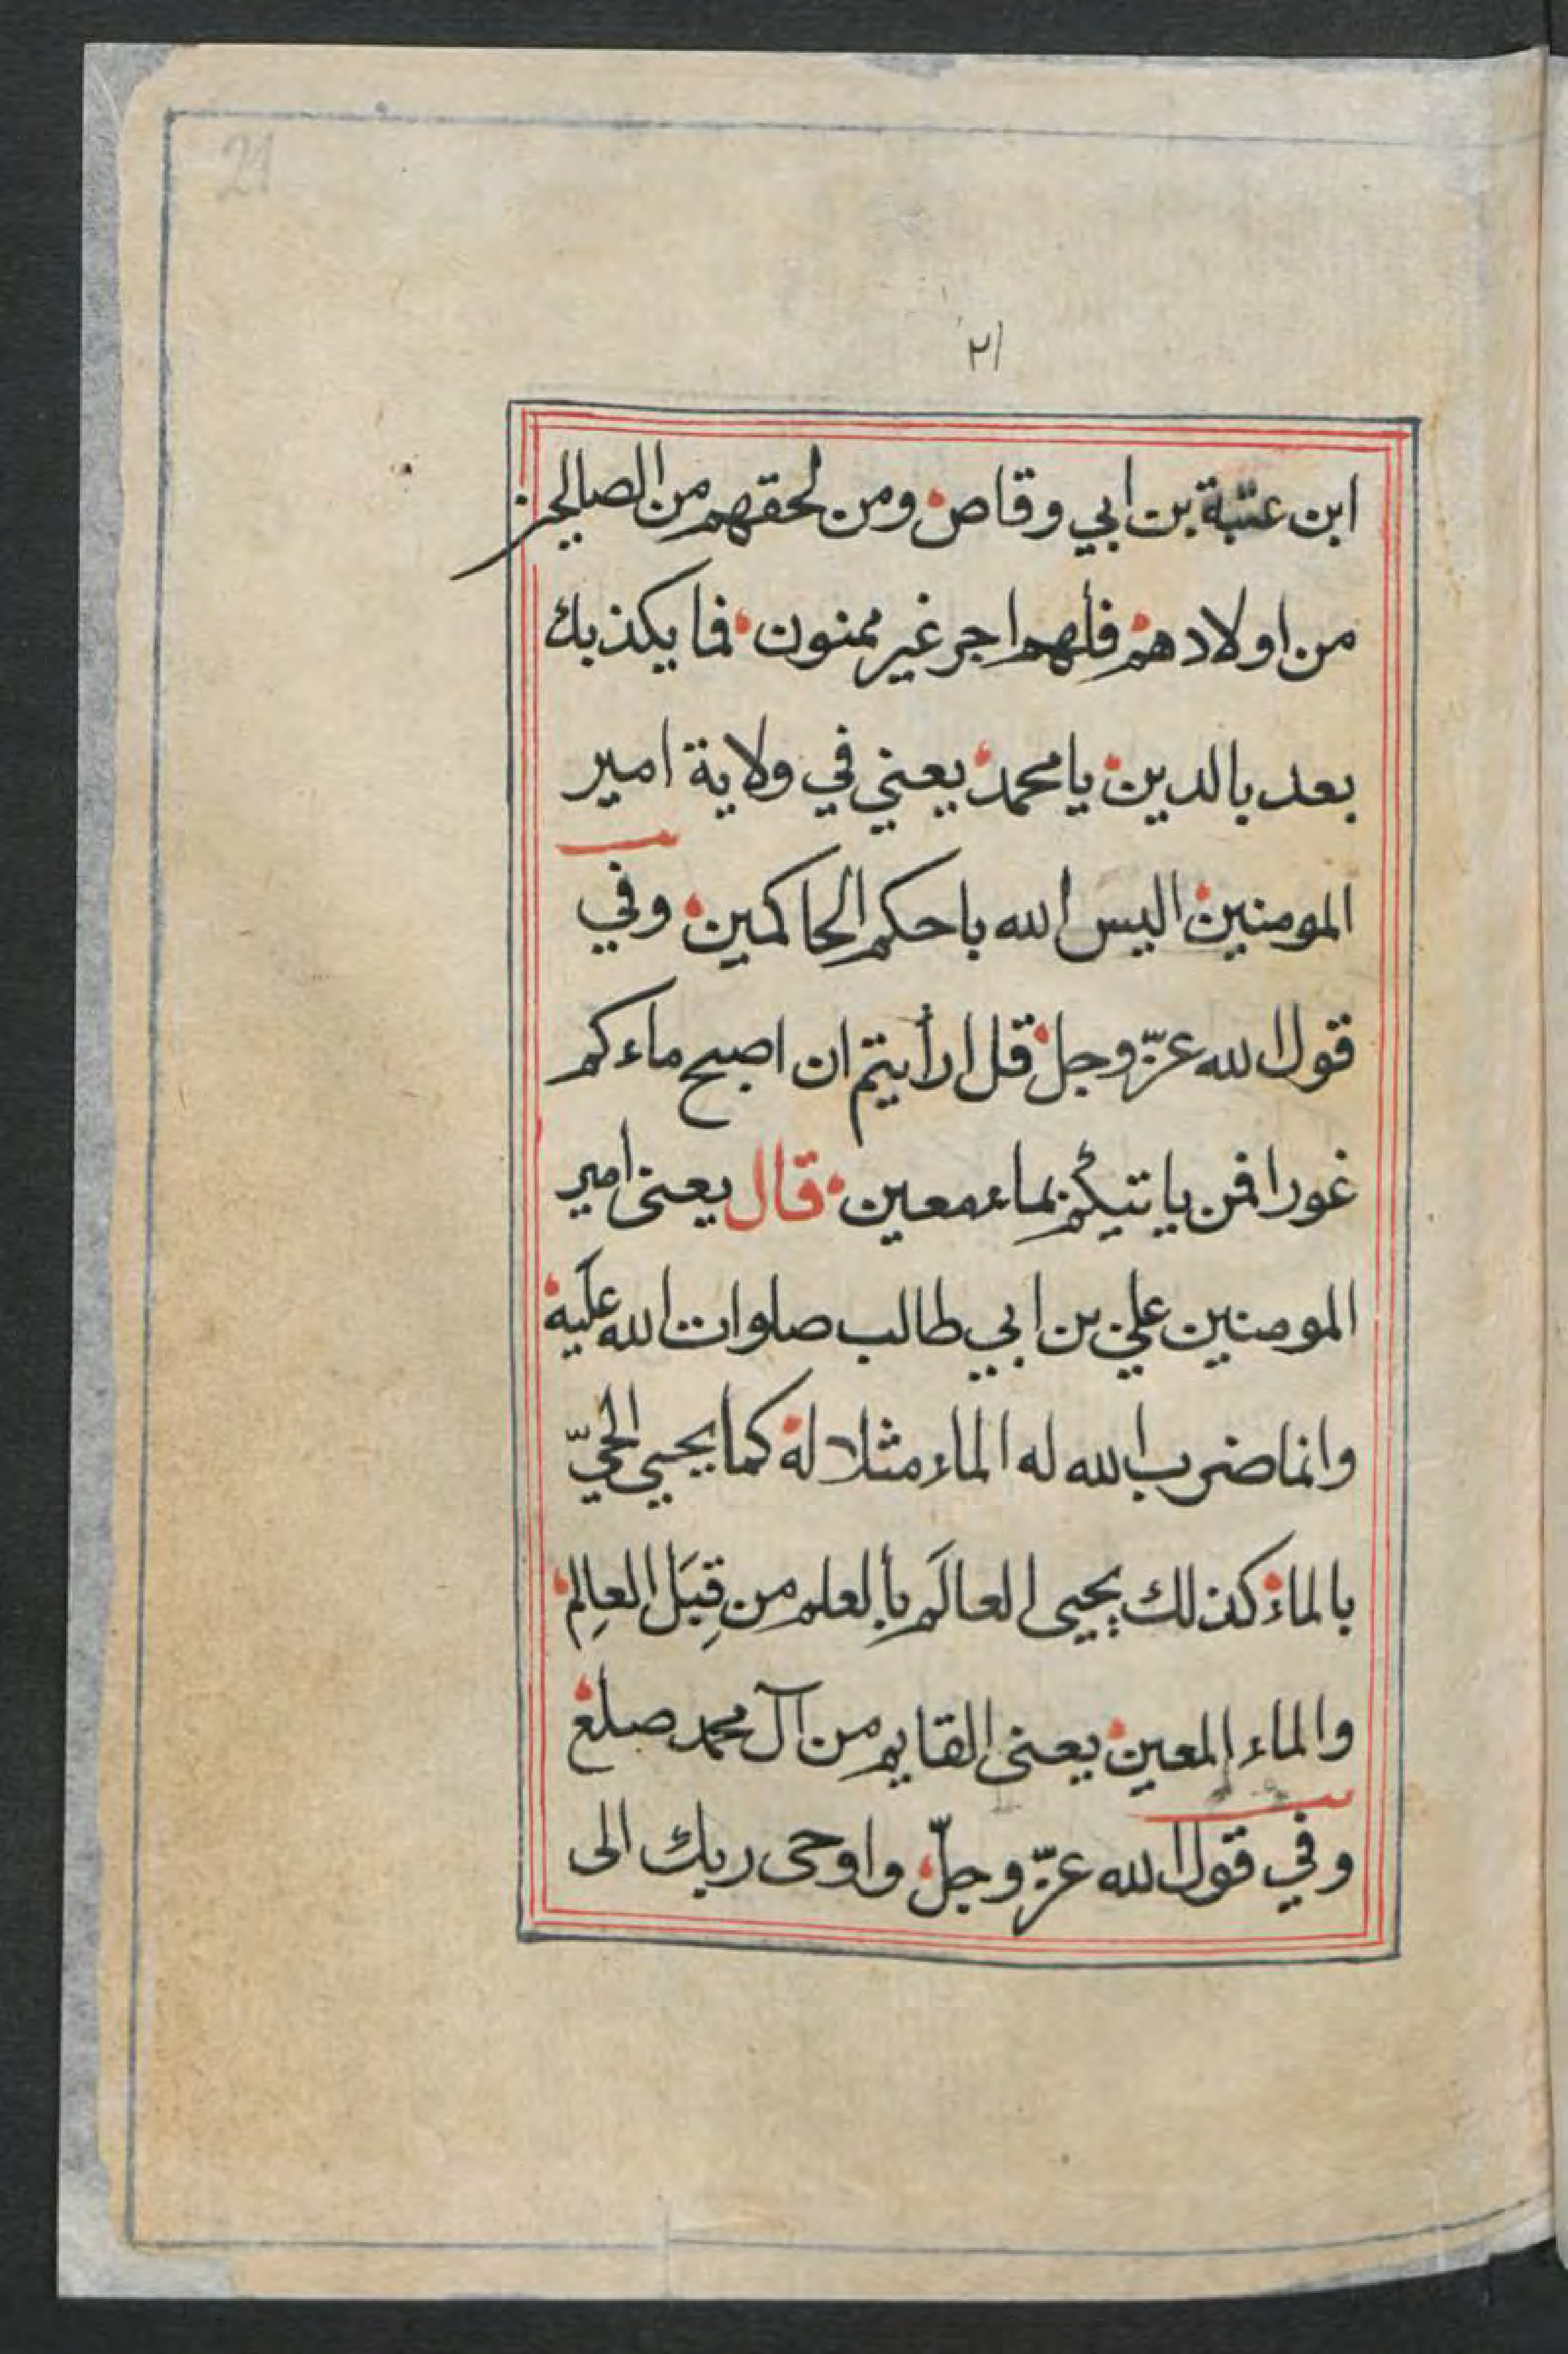 21
٢١
ابن عتبة بن ابي وقاص ومن لحقهم من الصالحين
من اولادهم فلهم اجر غير ممنون فما يكذبك
بعد بالدين يا محمد يعني في ولاية امير
المومنين اليس الله باحكم الحاكمين وفي
قول الله عزّ وجل قل ارأيتم ان اصبح ماءكم
غورا فمن ياتيكم بماء معين قال يعنى امير
المومنين علي بن ابي طالب صلوات الله عليه
وانما ضرب الله له الماء مثلا له كما يحيي الحيّ
بالماء كذلك يحيي العالَم بالعلم من قِبَل العالِم
والماء المعين يعنى القايم من آل محمد صلع
وفي قول الله عزّ وجلّ واوحى ربك الى